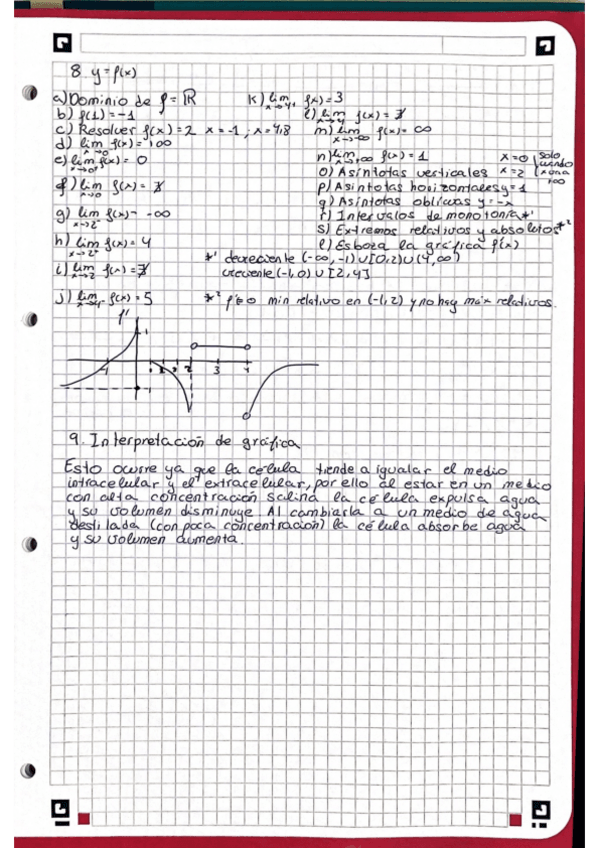 8. y=f(x)
a) Dominio de f = ℝ
b) f(1) = -1
c) Resolver f(x) = 2 x = -1 ; x = 4,8
d) lim x→0⁻ f(x) = +∞
e) lim x→0⁺ f(x) = 0
f) lim x→0 f(x) = ∄
g) lim x→2⁻ f(x) = -∞
h) lim x→2⁺ f(x) = 4
i) lim x→2 f(x) = ∄
j) lim x→4⁻ f(x) = 5
k) lim x→4⁺ f(x) = 3
l) lim x→4 f(x) = ∄
m) lim x→-∞ f(x) = ∞
n) lim x→+∞ f(x) = 1
o) Asíntotas verticales x = 0 x = 2 solo cuando
p) Asíntotas horizontales y = 1
q) Asíntotas oblicuas y = -x
r) Intervalos de monotonía *¹
s) Extremos relativos y absolutos *²
l) Esboza la gráfica f'(x)
*¹ decreciente (-∞, -1) ∪ [0,2) ∪ (4, ∞)
creciente (-1, 0) ∪ [2, 4]
*² f'=0 min relativo en (-1, 2) y no hay máx relativos.
f'
1
-1 1 2 3 4
-1
9. Interpretación de gráfica
Esto ocurre ya que la célula tiende a igualar el medio
intracelular y el extracelular, por ello al estar en un medio
con alta concentración salina la célula expulsa agua
y su volumen disminuye. Al cambiarla a un medio de agua
destilada (con poca concentración) la célula absorbe agua
y su volumen aumenta.